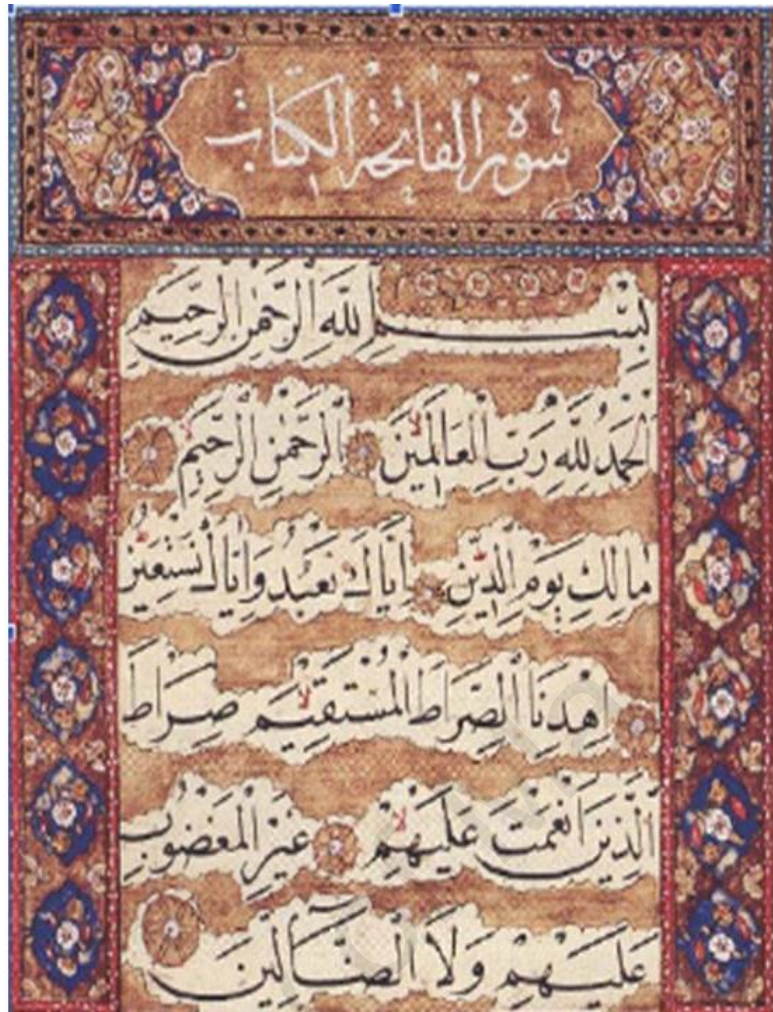 سورة الفاتحة الكتاب
بِسْمِ اللّٰهِ الرَّحْمٰنِ الرَّحِيمِ
الحَمْدُ لِلّٰهِ رَبِّ العَالَمِينَ لا الرَّحْمٰنِ الرَّحِيمِ لا
مَالِكِ يَوْمِ الدِّينِ ط اِيَّاكَ نَعْبُدُ وَاِيَّاكَ نَسْتَعِينُ ط
اِهْدِنَا الصِّرَاطَ المُسْتَقِيمَ لا صِرَاطَ
الَّذِينَ اَنْعَمْتَ عَلَيْهِمْ لا غَيْرِ المَغْضُوبِ
عَلَيْهِمْ وَلَا الضَّالِّينَ